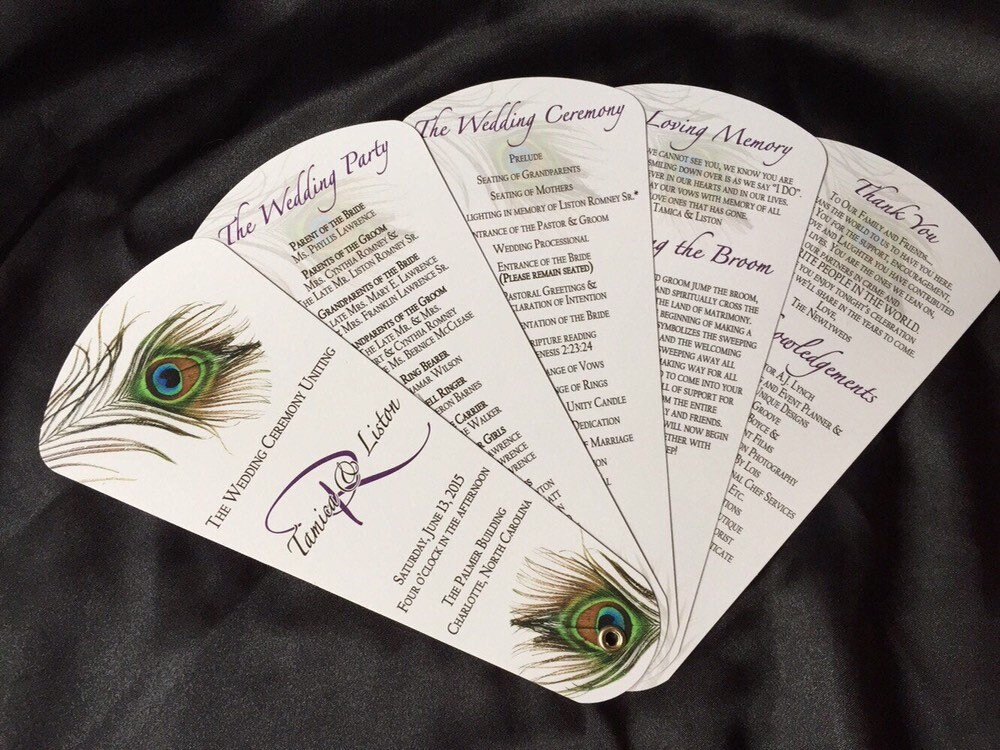 THE WEDDING CEREMONY UNITING
Tamica & Liston
R
SATURDAY, JUNE 13, 2015
FOUR O'CLOCK IN THE AFTERNOON
THE PALMER BUILDING
CHARLOTTE, NORTH CAROLINA
The Wedding Party
PARENT OF THE BRIDE
MS. PHYLLIS LAWRENCE
PARENTS OF THE GROOM
MRS. CYNTHIA ROMNEY &
THE LATE MR. LISTON ROMNEY SR.
GRANDPARENTS OF THE BRIDE
LATE MRS. MARY E. LAWRENCE
MR. FRANKLIN LAWRENCE SR.
GRANDPARENTS OF THE GROOM
THE LATE MR. & MRS.
RT & CYNTHIA ROMNEY
E MS. BERNICE MCCLEASE
RING BEARER
AMAR WILSON
ELL RINGER
ERON BARNES
CARRIER
E WALKER
R GIRLS
WRENCE
WRENCE
WRENCE
The Wedding Ceremony
PRELUDE
SEATING OF GRANDPARENTS
SEATING OF MOTHERS
LIGHTING IN MEMORY OF LISTON ROMNEY SR.*
ENTRANCE OF THE PASTOR & GROOM
WEDDING PROCESSIONAL
ENTRANCE OF THE BRIDE
(PLEASE REMAIN SEATED)
PASTORAL GREETING &
LARATION OF INTENTION
ENTATION OF THE BRIDE
RIPTURE READING
ENESIS 2:23:24
NGE OF VOWS
GE OF RINGS
UNITY CANDLE
DEDICATION
F MARRIAGE
ION
Loving Memory
WE CANNOT SEE YOU, WE KNOW YOU ARE
SMILING DOWN OVER IS AS WE SAY "I DO".
VER IN OUR HEARTS AND IN OUR LIVES.
AY OUR VOWS WITH MEMORY OF ALL
OVE ONES THAT HAS GONE.
TAMICA & LISTON
ng the Broom
D GROOM JUMP THE BROOM,
AND SPIRITUALLY CROSS THE
THE LAND OF MATRIMONY.
BEGINNING OF MAKING A
YMBOLIZES THE SWEEPING
AND THE WELCOMING
WEEPING AWAY ALL
AKING WAY FOR ALL
D TO COME INTO YOUR
LL OF SUPPORT FOR
OM THE ENTIRE
Y AND FRIENDS.
WILL NOW BEGIN
ETHER WITH
EP!
Thank You
TO OUR FAMILY AND FRIENDS...
ANS THE WORLD TO US TO HAVE YOU HERE.
YOU FOR THE SUPPORT, ENCOURAGEMENT,
OVE AND LAUGHTER YOU HAVE CONTRIBUTED
LIVES. YOU ARE THE ONES WE LEAN ON,
OUR PARTNERS IN CRIME AND
ITE PEOPLE IN THE WORLD.
YOU ENJOY TONIGHT'S CELEBRATION
WE'LL SHARE IN THE YEARS TO COME.
LOVE,
THE NEWLYWEDS
knowledgements
TOR A.J. LYNCH
AND EVENT PLANNER &
NIQUE DESIGNS
GROOVE
BOYCE &
NT FILMS
ON PHOTOGRAPHY
BY LOIS
AL CHEF SERVICES
ETC.
TIONS
UTIQUE
ORIST
TICATE